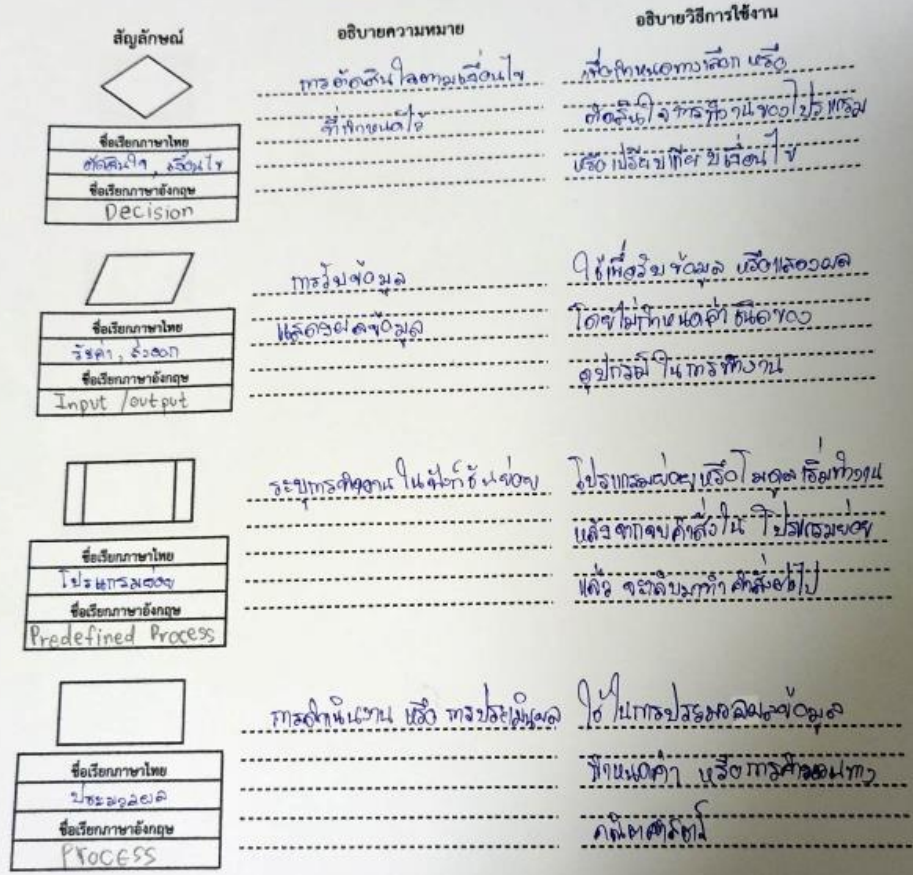 สัญลักษณ์
อธิบายความหมาย
อธิบายวิธีการใช้งาน
ชื่อเรียกภาษาไทย
ตัดสินใจ, เงื่อนไข
ชื่อเรียกภาษาอังกฤษ
Decision
การตัดสินใจตามเงื่อนไข
ที่กำหนดไว้
เพื่อกำหนดทางเลือก หรือ
ตัดสินใจ การทำงานของโปรแกรม
หรือ เปรียบเทียบ เงื่อนไข
ชื่อเรียกภาษาไทย
รับค่า, ส่งออก
ชื่อเรียกภาษาอังกฤษ
Input /output
การรับข้อมูล
แสดงผลข้อมูล
ใช้เพื่อรับข้อมูล หรือแสดงผล
โดยไม่กำหนดค่า ชนิดของ
อุปกรณ์ ในการทำงาน
ชื่อเรียกภาษาไทย
โปรแกรมย่อย
ชื่อเรียกภาษาอังกฤษ
Predefined Process
ระบุการทำงาน ในฟังก์ชันย่อย
โปรแกรมย่อยหรือโมดูล เริ่มทำงาน
หลังจากจบคำสั่งใน โปรแกรมย่อย
แล้ว จะกลับมาทำ คำสั่งต่อไป
ชื่อเรียกภาษาไทย
ประมวลผล
ชื่อเรียกภาษาอังกฤษ
Process
การดำเนินงาน หรือ การประเมินผล
ใช้ ในการประมวลผลข้อมูล
กำหนดค่า หรือการคำนวณทาง
คณิตศาสตร์